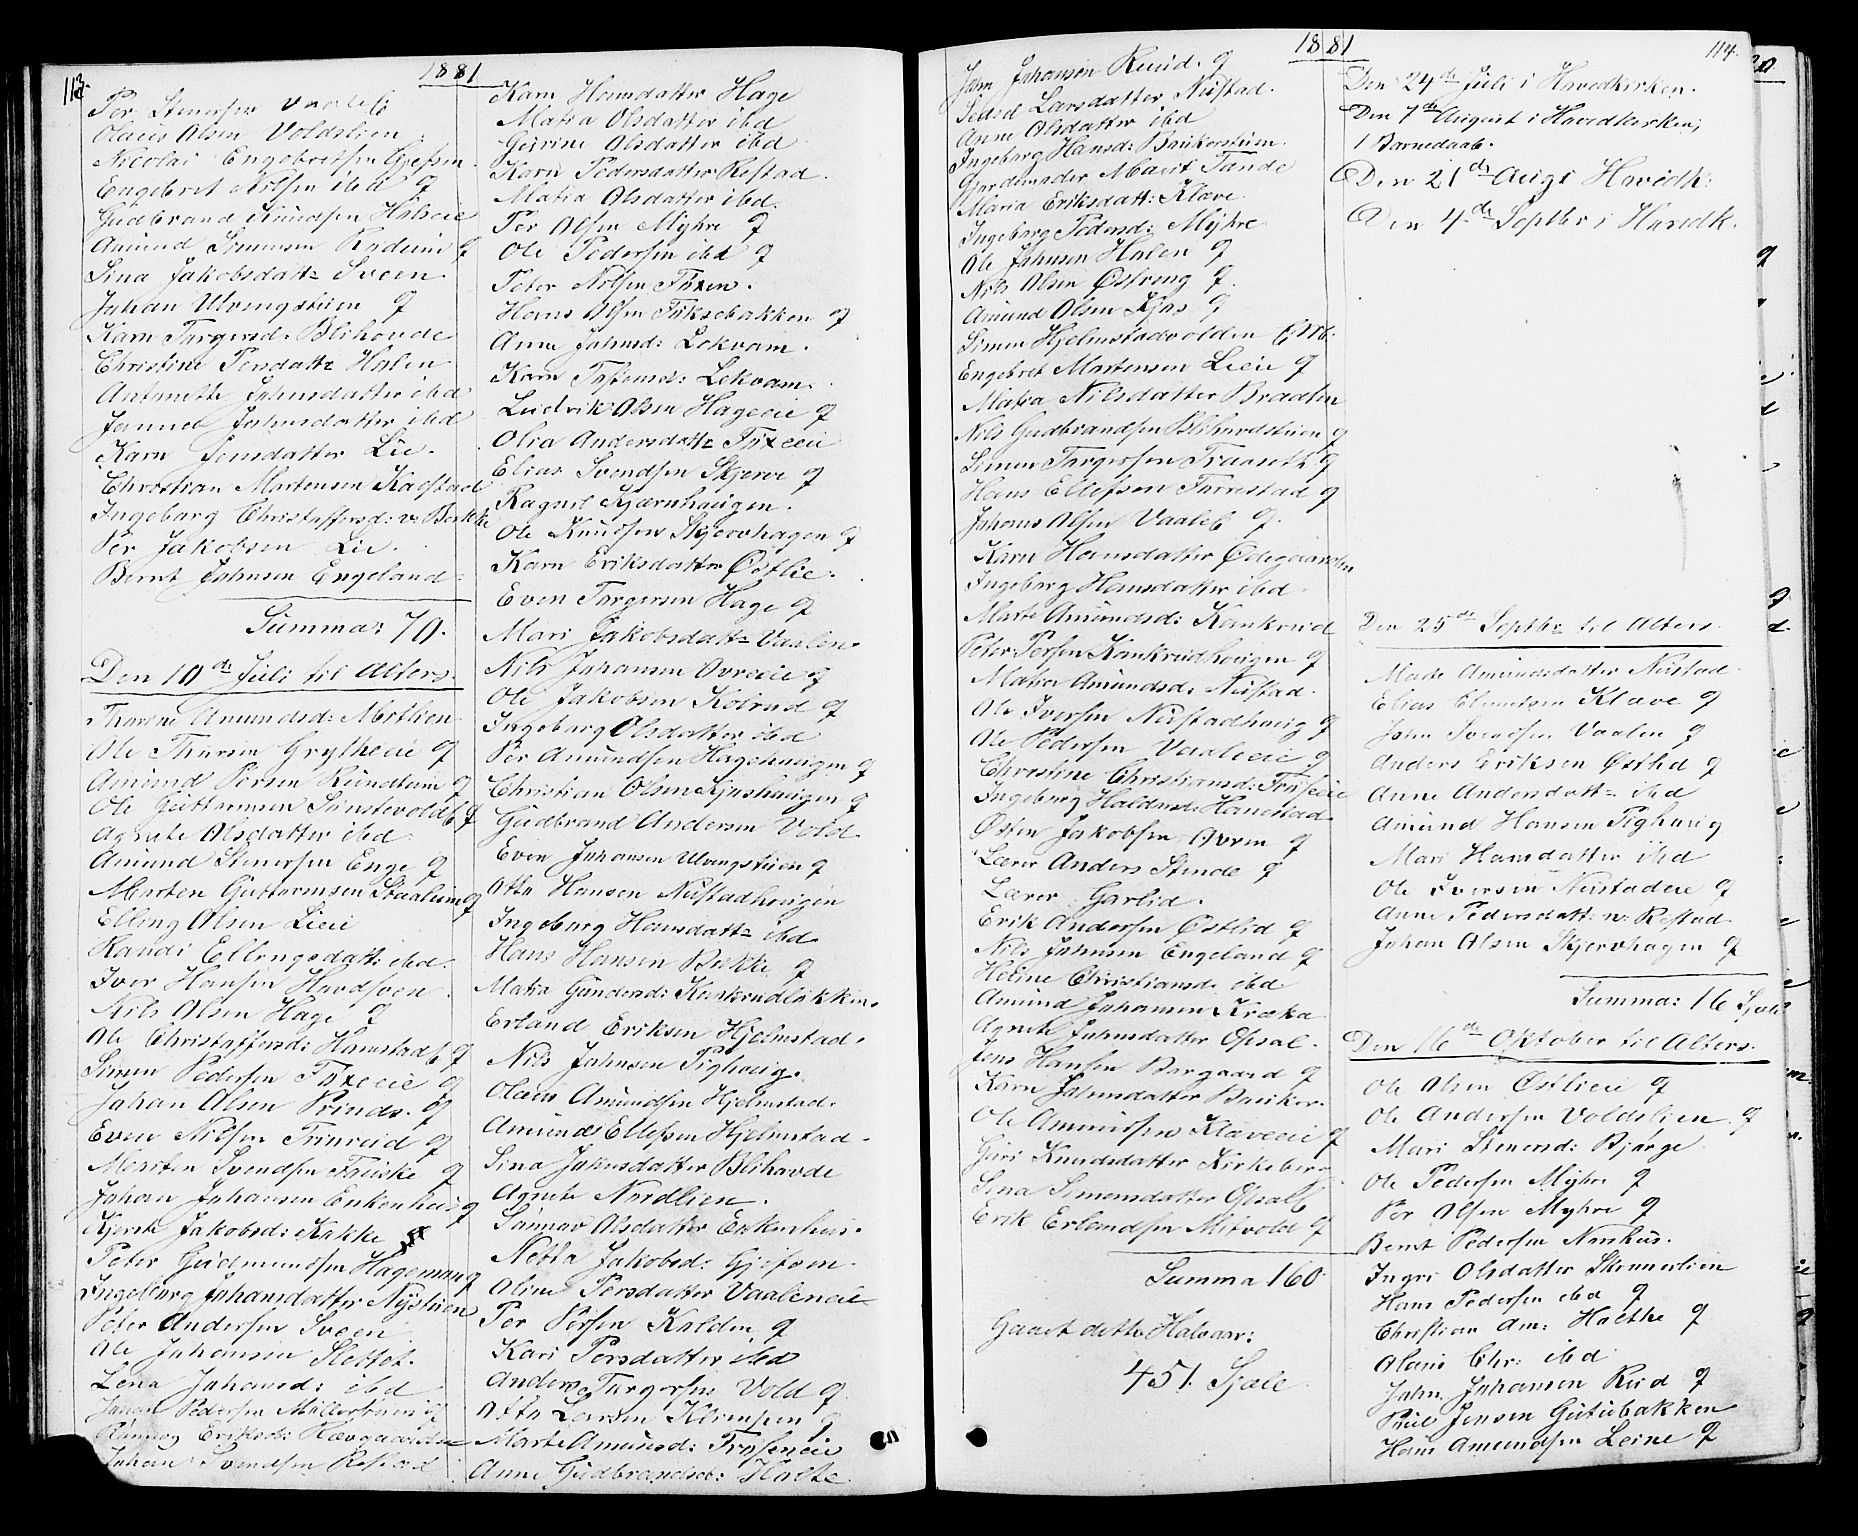 113.
1881
Per Stenersen Vaaleb
Olaus Olsen Voldslien
Nicolai Engebretsen Gjefsen
Engebret Nilsen ibd q
Gudbrand Knudsen Halseie
Amund Simensen q
Sina Jakobsdatt: Sveen
Johan Ulvengstuen q
Karn Torgersd: Blihovde
Christine Persdatt: Holen
Antonette Johnsdatter ibd
Johnsdatter ibd
Karn Jensdatter Lie
Christian Mortensen Kaefstad
Ingeborg Christoffersd: v: Bække
Per Jakobsen Lie.
Bernt Johnsen Engeland
Summa: 70.
Den 10de Juli til Alters.
Thorine Amundsd: Mothien
Ole Thorsen Grytheeie q
Amund Persen Rundtuin q
Ole Guttormsen q
Agnete Olsdatter ibd
Amund Stenersen Enge q
Morten Guttormsen q
Elling Olsen Lieie
Randi Ellingsdatt: ibd.
Iver Hansen Hovdsveen
Nils Olsen Hage q
Ole Christoffersd: Hanestad q
Simen Pedersen Fixeeie q
Johan Olsen Prinds. q
Even Nilsen q
Morten Svendsen Fruske q
Johan Johansen Enkenhus q
Kjersti Jakobsd: Kække
Peter Gudmundsen Hageman q
Ingeborg Johansdatter Nystuen
Peter Andersen Sveen
Ole Johansen Slettet.
Lena Johansd: ibd
Johan Pedersen q
Eriksd:
Johan Svendsen Rostad
Karn Hansdatter Hage
Matia Olsdatter ibd
Gurine Olsdatter ibd
Karn Pedersdatter Rostad.
Matia Olsdatter ibd.
Per Olsen Myhre q
Ole Pedersen ibd q
Peter Nilsen Fixen.
Hans Olsen Fiksebakken q
Anne Johnsd: Lokvam.
Karn Tostensd: Lekvam.
Ludvik Olsen Hageeie q
Olia Andersdatt: Fixeeie
Elias Svendsen Skjerve q
Ragnil Kjærnhaugen.
Ole Knudsen Skjervhagen q
Karn Eriksdatter Østlie.
Even Torgersen Hage q
Mari Jakobsdatt: Vaalen.
Nils Johansen Ovreeie q
Ole Jakobsen Koirud q
Ingeborg Olsdatter ibd
Per Amundsen Hagehaugen q
Christian Olsen Kjoshaugen q
Gudbrand Andersen Vold.
Even Johansen Ulvengstuen q
Otto Hansen Nustadhougen
Ingeborg Hansdatt: ibd
Hans Hansen Bække q
Matia Gundersd: Kankrudløkken.
Erland Eriksen Hjelmstad.
Nils Johnsen Pighoug.
Olaus Amundsen Hjelmstad.
Amund Ellefsen Hjelmstad.
Sina Johnsdatter Blihovde
Agnete Nordlien.
Olsdatter Enkenhus.
Netta Jakobsd: Gjefsen.
Oline Persdatter Vaaleneie
Per Persen Kolden q
Kari Persdatter ibd
Anders Torgersen Vold q.
Otto Larsen Klomsen q
Marte Amunsd: Froseneie
Anne Gudbrandsd: Holte
1881
114.
John Johansen Ruud. q
Larsdatter Nustad.
Anne Olsdatter ibd
Ingeborg Hansd: Baukerstuen.
Gjordemoder Marit Tande
Maria Eriksdatt: Klæve
Ingeborg Pedersd: Myhre
Ole Johnsen Holen q
Nils Olsen Østreng q.
Amund Olsen Kjos q
Simen Hjelmstadvolden
Engebret Mortensen Lieie q
Matea Nilsdatter Braaten
Nils Gudbrandsen Blihovdstuen q
Simen Torgersen Traaseth q
Hans Ellefsen Torrestad q
Johans Olsen Vaaleb q.
Karn Hansdatter Ødegaarden
Ingeborg Hansdatter ibd.
Marte Amundsd: Kankrud
Peter Persen Kankrudhougen q
Matea Amundsd: Nustad.
Ole Iversen Nustadhoug q
Ole Pedersen Vaaleeie q
Christine Christiansd: Froseeie
Ingeborg Haldorsd: Hanestad
Østen Jakobsen Ovren q
Lærer Anders Stende q
Lærer Garlid.
Erik Andersen Østlid q
Nils Johnsen Engeland q
Heline Christiansd: ibd
Amund Johansen Kroka
Agnete Johnsdatter Opsal.
Jens Hansen Borgaard q
Karn Johnsdatter Bauker.
Ole Amundsen Klæveeie q
Guri Knudsdatter Kirkeberg
Sina Simensdatter Opsal
Erik Erlandsen Mitvold q
Summa 160.
Gaaet dette Halvaar:
451. Sjæle
Den 24de Juli i Hovedkirken.
Den 7de August i Hovedkirken,
1 Barnedaab.
Den 21de Aug i Hovedk:
Den 4de Septbr i Hovedk.
Den 25de Septbr til Alters.
Marte Amundsdatter Nustad
Elias Clemetsen Klæve q
John Svendsen Vaalen q
Anders Eriksen Østlid q
Anne Andersdatt: ibd
Amund Hansen Pighoug
Mari Hansdatter ibd
Ole Iversen Nustadeie q
Anne Pedersdatt: n: Rostad.
Johan Olsen Skjervhagen q
Summa: 16 Sjæle
Den 16de Oktober til Alters.
Ole Olsen Østlieie q
Ole Andersen Voldslien. q
Mari Simensd: Bjørge.
Ole Pedersen Myhre q
Per Olsen Myhre q
Bernt Pedersen Norhus.
Ingri Olsdatter Skinnerlien
Hans Pedersen ibd q
Christian Am: Holthe q
Olaus Chr: ibd
John Johansen Rud q
Paul Jensen Gutubakken
Hans Amundsen Leine q